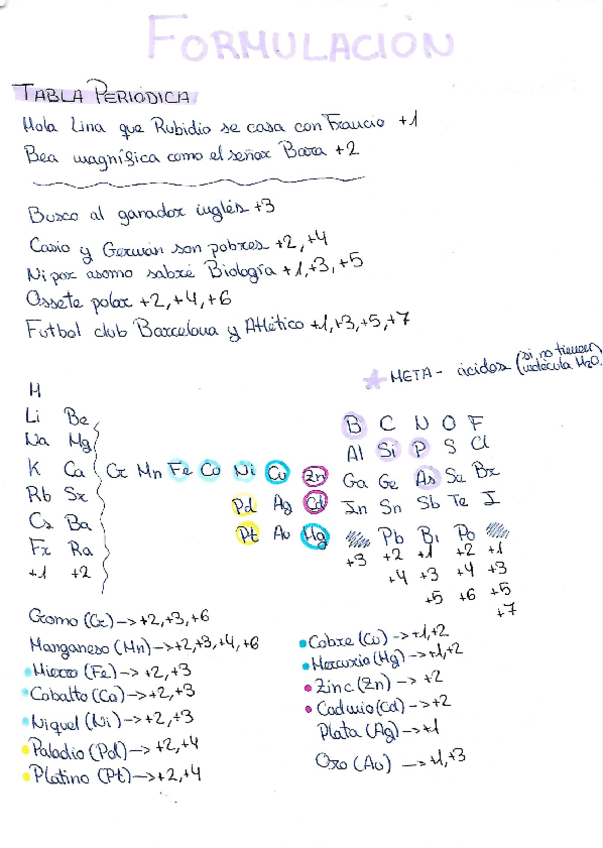 FORMULACIÓN
TABLA PERIÓDICA
Hola Lina que Rubidio se casa con Francio +1
Bea magnífica como el señor Bara +2
Busco al ganador inglés +3
Casio y Germán son pobres +2, +4
Ni por asomo sabré Biología +1, +3, +5
Ossete polar +2, +4, +6
Futbol club Barcelona y Atlético +1, +3, +5, +7
META- ácidos (si no tienen molécula H2O)
H
Li Be B C N O F
Na Mg Al Si P S Cl
K Ca Cr Mn Fe Co Ni Cu Zn Ga Ge As Se Br
Rb Sr Pd Ag Cd In Sn Sb Te I
Cs Ba Pt Au Hg Pb Bi Po
Fr Ra
+1 +2 +3 +2 +1 +2 +1
+4 +3 +4 +3
+5 +6 +5
+7
Cromo (Cr) -> +2, +3, +6
Manganeso (Mn) -> +2, +3, +4, +6
Hierro (Fe) -> +2, +3
Cobalto (Co) -> +2, +3
Niquel (Ni) -> +2, +3
Paladio (Pd) -> +2, +4
Platino (Pt) -> +2, +4
Cobre (Cu) -> +1, +2
Mercurio (Hg) -> +1, +2
Zinc (Zn) -> +2
Cadmio (Cd) -> +2
Plata (Ag) -> +1
Oro (Au) -> +1, +3